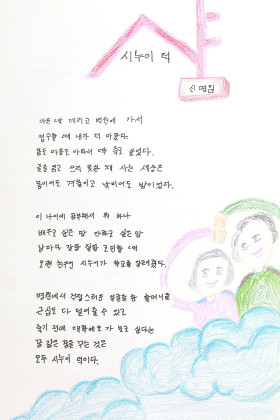 시누이 덕
신명희
아픈 딸 데리고 병원에 가서
접수할 때 내가 더 아팠다.
몸도 마음도 아파서 딱 죽고 싶었다.
글을 읽고 쓰지 못한 채 사는 세상은
봄이어도 겨울이고 낮이어도 밤이었다.
이 나이에 공부해서 뭐 하나
배우고 싶은 맘 안하고 싶은 맘
날마다 갈팡질팡 고민할 때
오랜 시누이가 학교를 알려줬다.
병원에서 걱정스러운 얼굴을 한 할머니를
근심도 다 덜어줄 수 있고
죽기 전에 대학에도 가 보고 싶다는
꿈 같은 꿈을 꾸는 것은
모두 시누이 덕이다.